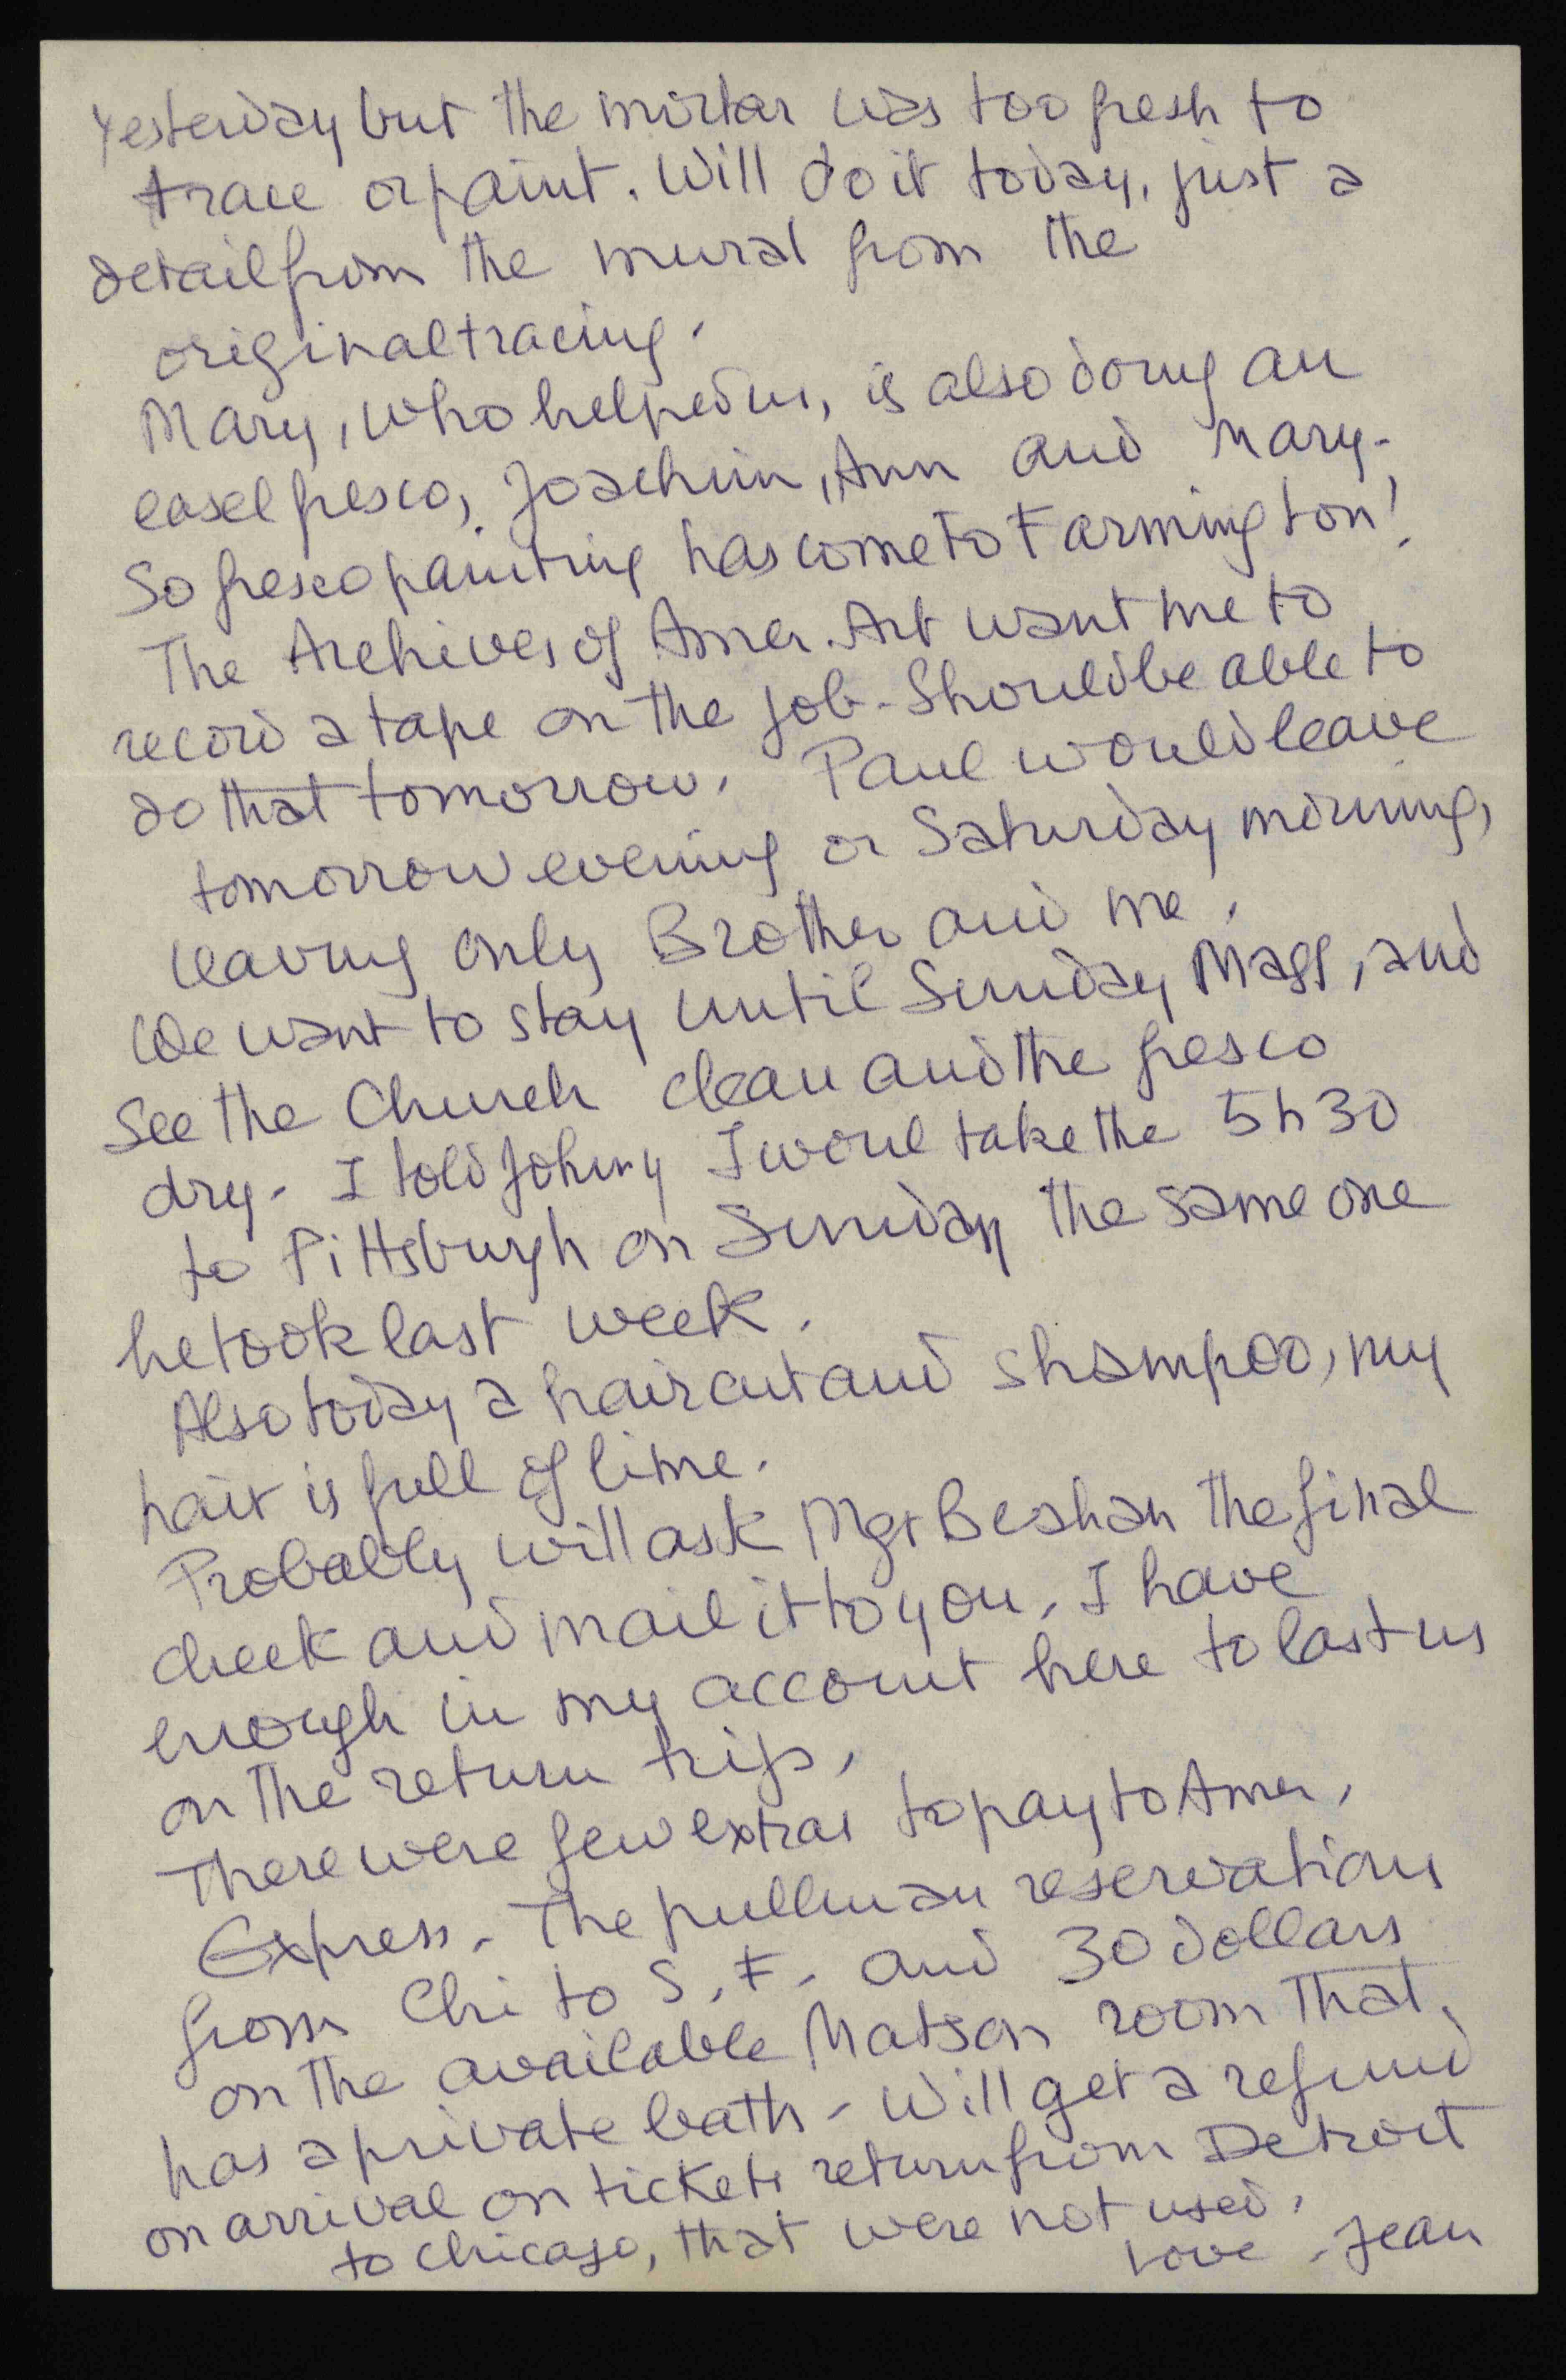 Yesterday but the mortar was too fresh to
trace or paint. Will do it today, just a
detail from the mural from the
original tracing.
Mary, who helped us, is also doing an
easel fresco, Joachim, Ann and Mary.
So fresco painting has come to Farmington!
The Archives of Amer. Art want me to
record a tape on the job. Should be able to
do that tomorrow. Paul would leave
tomorrow evening or Saturday morning,
leaving only Brother and me.
We want to stay until Sunday Mass, and
see the Church clean and the fresco
dry. I told Johny I woul take the 5h30
to Pittsburgh on Sunday the same one
he took last week.
Also today a haircut and shampoo, my
hair is full of lime.
Probably will ask Mgr Beahan the final
check and mail it to you. I have
enough in my account here to last us
on the return trip.
There were few extras to pay to Amer.
Express. The pullman reservations
from Chi to S.F. and 30 dollars
on the available Matson room that
has a private bath. Will get a refund
on arrival on tickets return from Detroit
to Chicago, that were not used.
Love. Jean